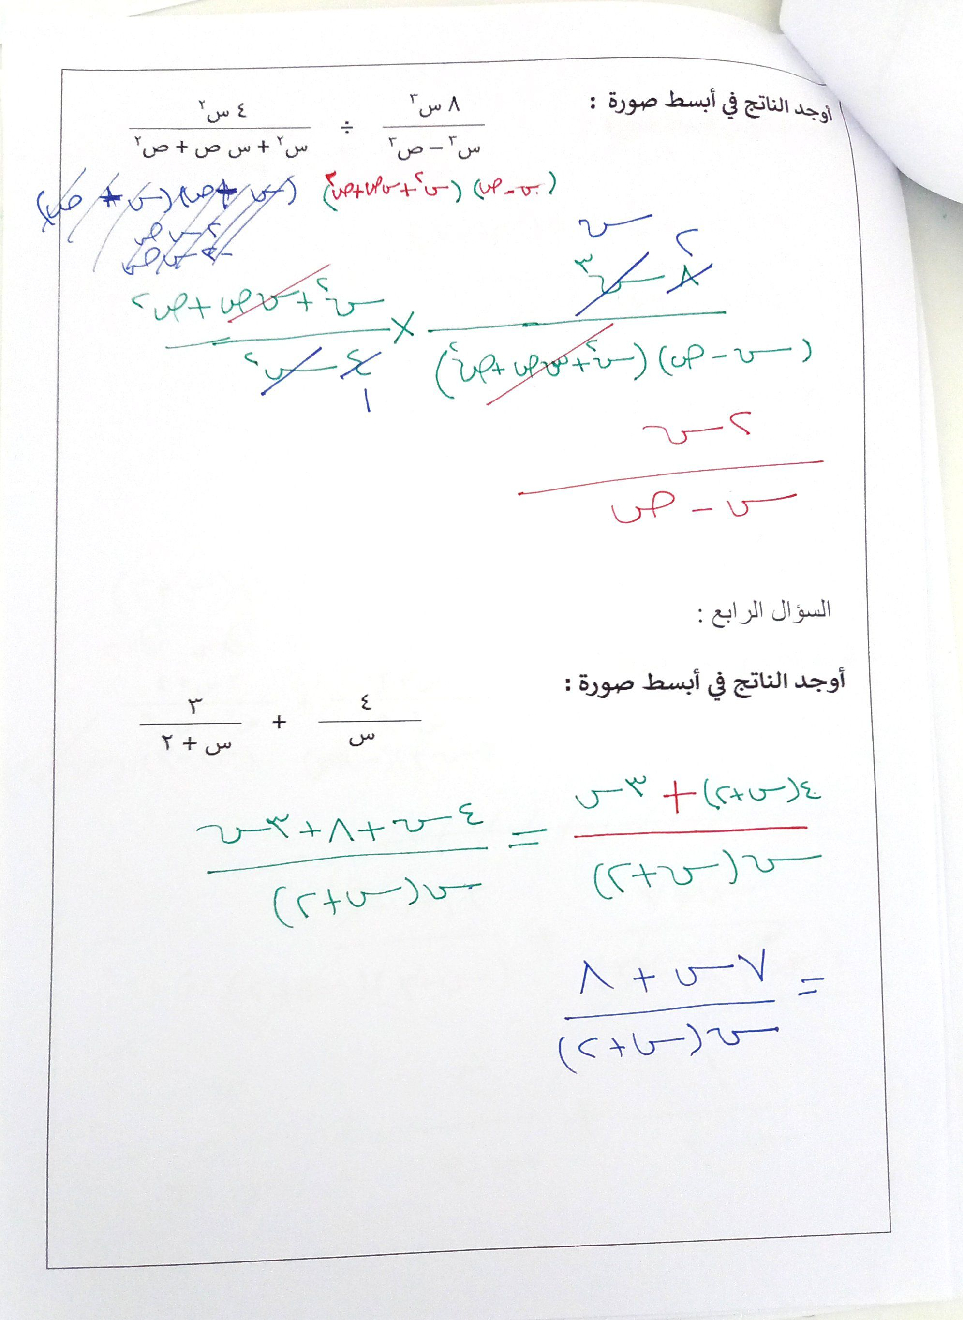 أوجد الناتج في أبسط صورة :
٨ س٣ / س٣ – ص٣ ÷ ٤ س٢ / س٢ + س ص + ص٢
(س – ص) (س٢ + س ص + ص٢) (س + ص)(س + ص)
س ٢
٨ س٣ / (س – ص) (س٢ + س ص + ص٢) × س٢ + س ص + ص٢ / ٤ س٢
١
٢ س / س – ص
السؤال الرابع :
أوجد الناتج في أبسط صورة :
٤ / س + ٣ / س + ٢
٤(س+٢) + ٣ س / س(س+٢) = ٤ س + ٨ + ٣ س / س(س+٢)
= ٧ س + ٨ / س(س+٢)